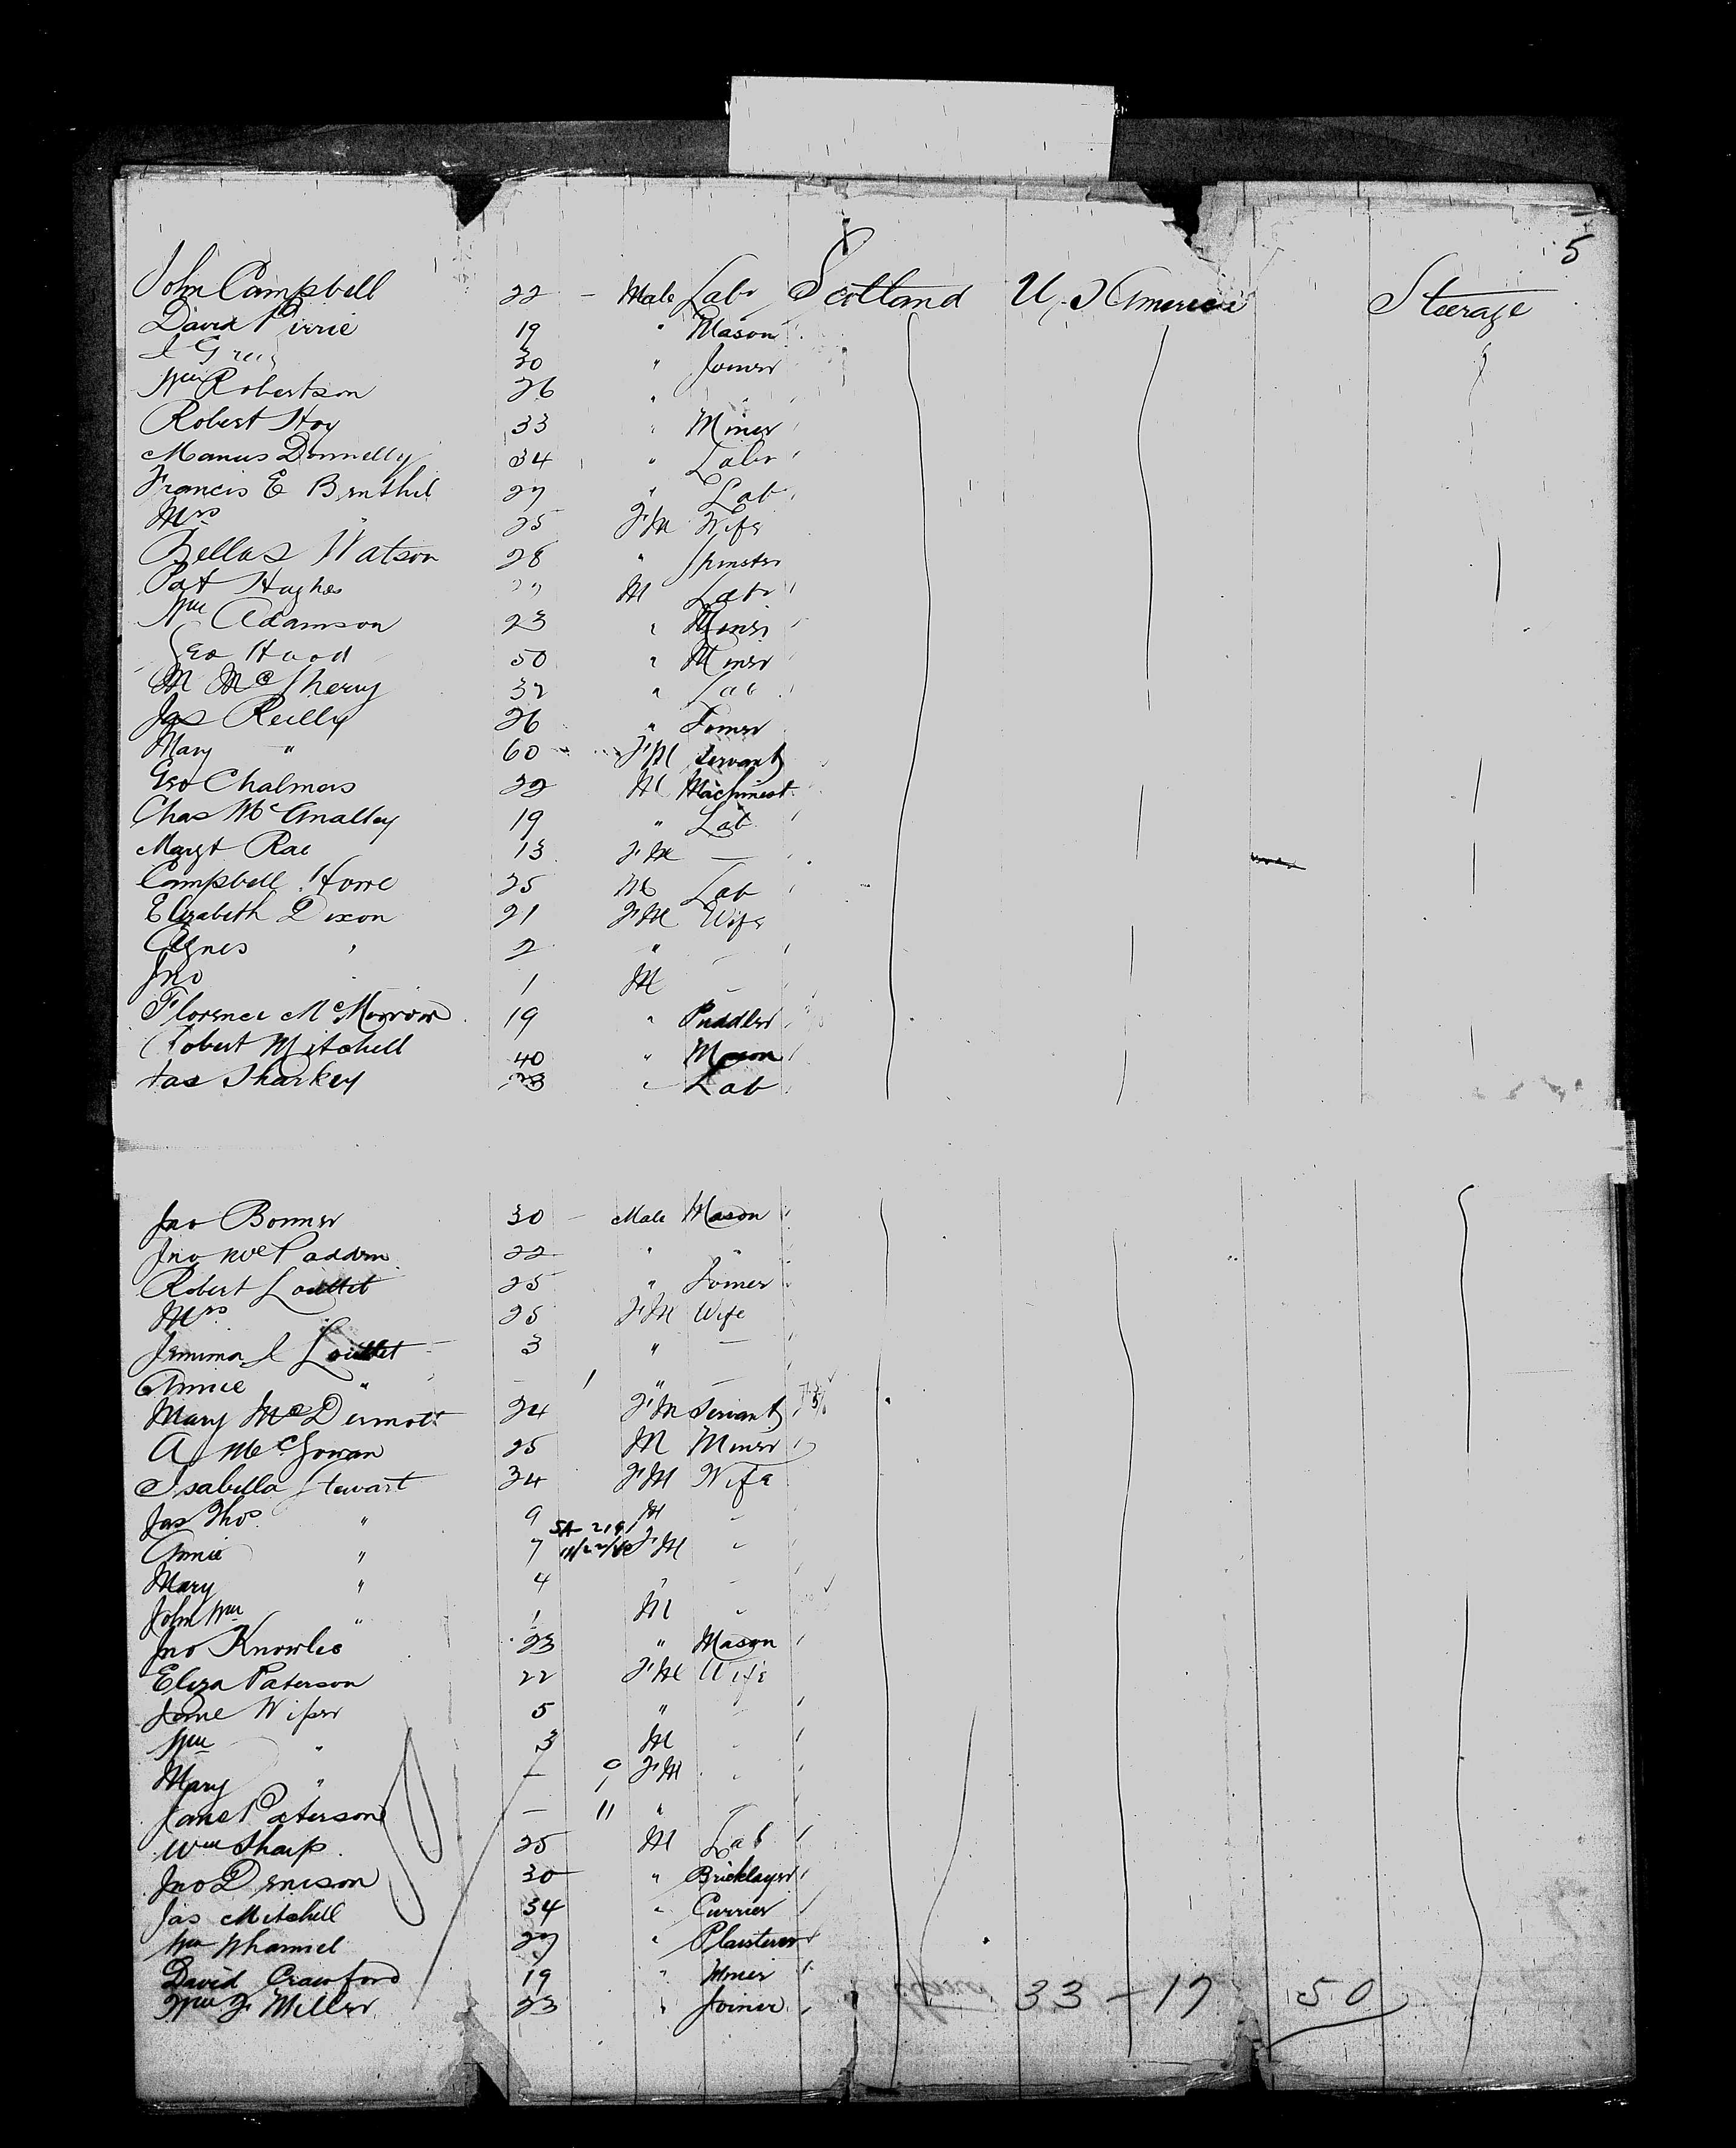 5
John Campbell 22 — Male Labr Scotland U, S America Steerage
David Pirrie 19 " Mason
J 30 " Joiner
Wm Robertson 26 " "
Robert Hoy 33 " Miner
Manus Donnelly 34 " Labr
Francis E 27 " Lab
Mrs " 25 F'M Wife
Bellas Watson 28 " Spinster
Pat Hughes M Labr
Wm Adamson 23 " Miner
Geo Hood 50 " Miner
M McSherry 32 " Lab
Jas Reilly 26 " Joiner
Mary " 60 F'M Servant
Geo Chalmers 22 M Machinist
Chas McAnalley 19 " Lab
Margt Rae 13 F'M —
Campbell Howe 25 M Lab
Elizabeth Dixon 21 F'M Wife
Agnes " 2 " —
Jno " 1 M —
Florence McMorrow 19 " Puddler
Robert Mitchell 40 " Mason
Jas Sharkey 23 " Lab
Jno Bonner 30 — Male Mason
Jno McPadden 22 " "
Robert 25 " Joiner
Mrs 25 F'M Wife
Jemima J 3 " —
Annie " — 1 " —
Mary McDermott 24 F'M Servant
A McGowan 25 M Miner
Isabella Stewart 34 F'M Wife
Jas Thos " 9 M "
Annie " 7 F'M "
Mary " 4 " "
John Wm " 1 M "
Jno Knowles 23 " Mason
Eliza Paterson 22 F'M Wife
Jane Wiper 5 "
Wm " 3 M "
Mary " — 9 F'M "
Jane Paterson — 11 " "
Wm Sharp 25 M Lab
Jno Denison 30 " Bricklayer
Jas Mitchell 34 " Currier
Wm Whannel 27 " Plaisterer
David Crawford 19 " Miner
Wm F Miller 23 " Joiner
33 — 17 50